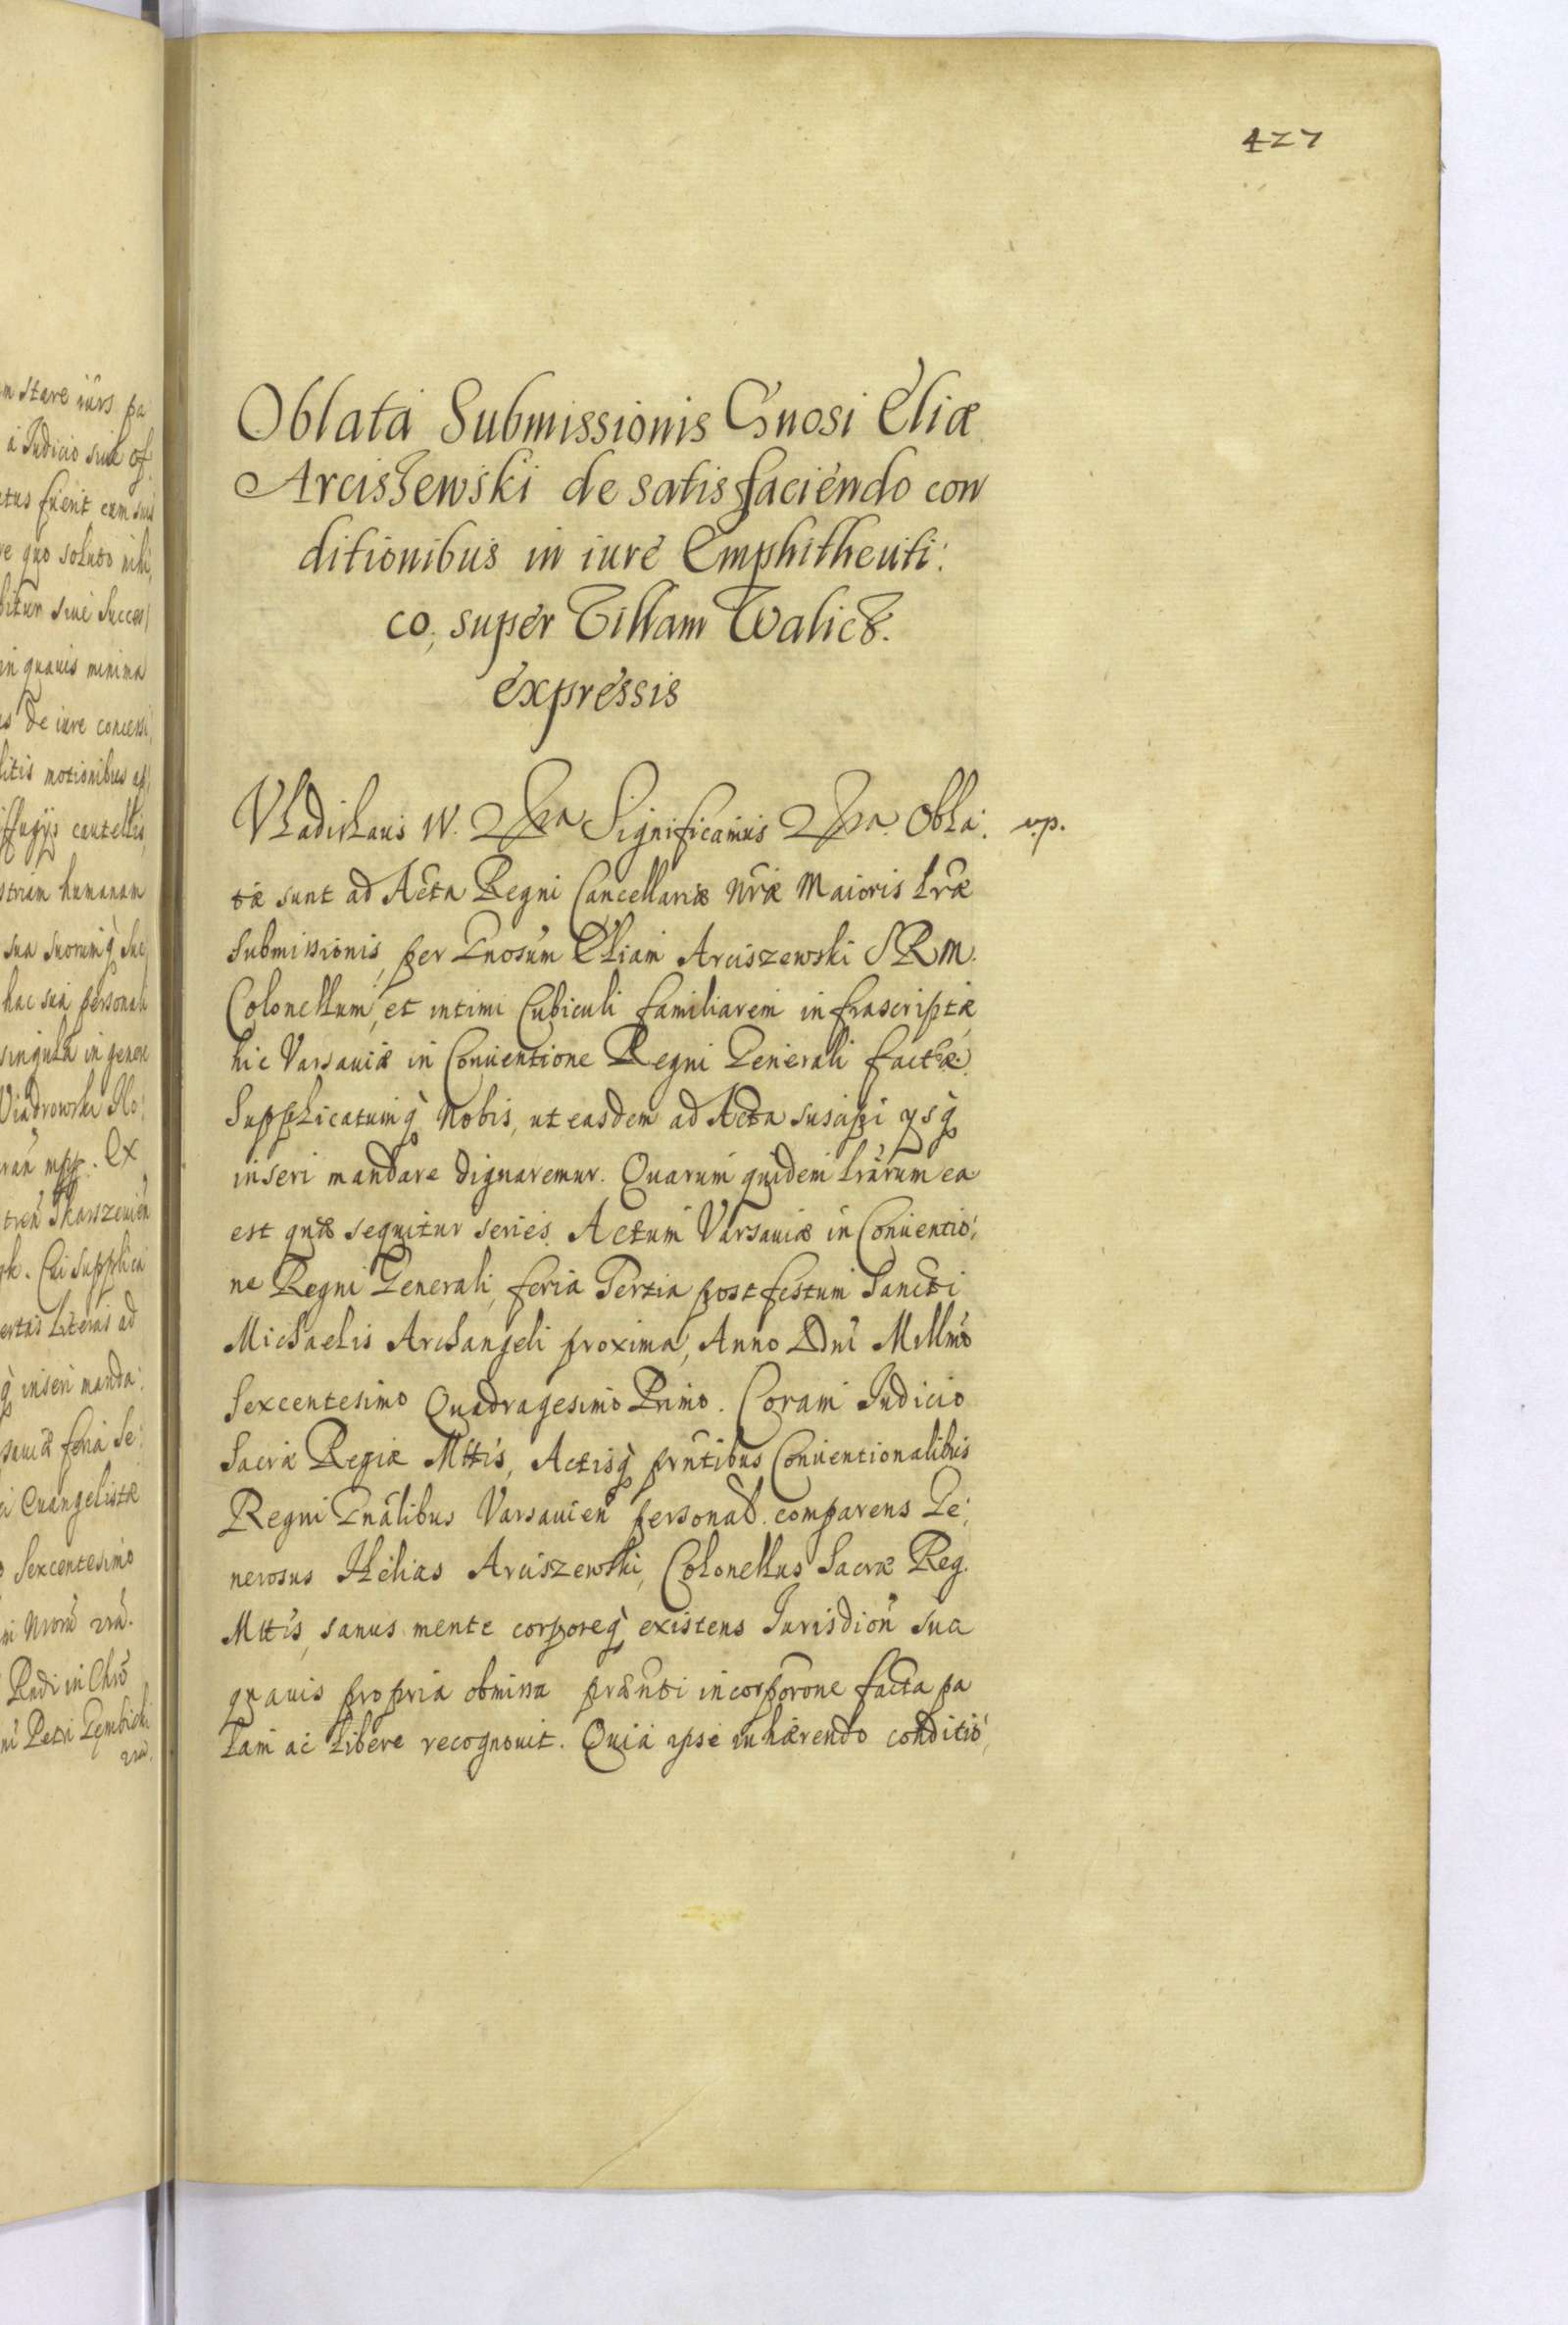 427
Oblata Submissionis Gnosi Eliæ
Arciszewski de satisfaciendo con
ditionibus in iure Emphitheuti:
co, super Villam Walicz.
expressis
Vladislaus IV. Significamus Obla: v.p.
tæ sunt ad Acta Regni Cancellariæ nr̃æ Maioris lr̃æ
submissionis, per Gnosum Eliam Arciszewski S R M.
Colonellum, et intimi Cubiculi familiarem infrascriptæ,
hic Varsaviæ in Conventione Regni Generali factæ.
Supplicatumq̃ nobis, ut easdem ad Acta suscipi ysq̃
inseri mandare dignaremur. Quarum quidem lr̃arum ea
est quæ sequitur series. Actum Varsaviæ in Conventio:
ne Regni Generali, feria Tertia post festum Sancti
Michaelis Archangeli proxima, Anno Dni Millmo
Sexcentesimo Quadragesimo Primo. Coram Iudicio
Sacræ Regiæ Mttis, Actisq̃ prñtibus Conventionalibus
Regni Gnãlibus Varsavien personal. comparens Ge:
nerosus Helias Arciszewski, Colonellus Sacræ Reg.
Mttis, sanus mente corporeq̃ existens Iurisdion sua
quavis propria obmissa præñti incorporõne facta pa
lam ac libere recognovit. Quia ipse inhærendo conditio,
m stare iurs pa
a Iudicio
fuerit cum suis
ve quo soluto nihi
bitur sive Succes
in quavis minima
us de iure concessi
litis motionibus
ffugys cautellis
striam humanam
sua suorumq̃ Suc
hac sua personali
singula in genere
Viadrowski No:
ran mpp. Ex
Skarszevien
rk. Cui supplica
ertas Literas ad
q̃ inseri manda:
saviæ feria Se:
i Evangelistæ
Sexcentesimo
Rndi in Chro
ni Petri Gembicki